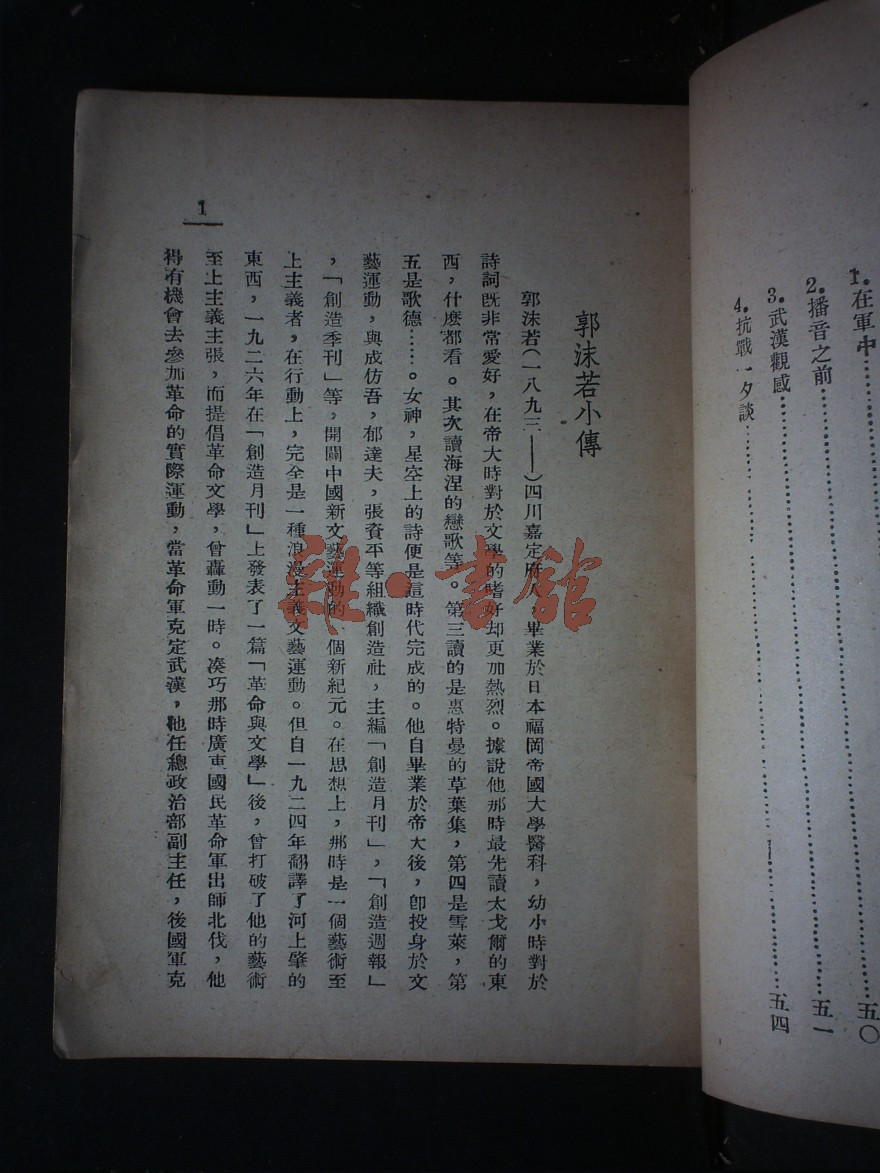 1.在軍中………………五〇
2.播音之前………………五一
3.武漢觀感………………五四
4.抗戰一夕談………………
郭沫若小傳
郭沫若(一八九三——)四川嘉定府人 畢業於日本福岡帝國大學醫科，幼小時對於
詩詞既非常愛好，在帝大時對於文學的嗜好却更加熱烈。據說他那時最先讀太戈爾的東
西，什麽都看。其次讀海涅的戀歌等。第三讀的是惠特曼的草葉集，第四是雪萊，第
五是歌德……。女神，星空上的詩便是這時代完成的。他自畢業於帝大後，卽投身於文
藝運動，與成仿吾，郁達夫，張資平等組織創造社，主編「創造月刊」，「創造週報」
，「創造季刊」等，開闢中國新文藝運動的一個新紀元。在思想上，那時是一個藝術至
上主義者，在行動上，完全是一種浪漫主義文藝運動。但自一九二四年翻譯了河上肇的
東西，一九二六年在「創造月刊」上發表了一篇「革命與文學」後，曾打破了他的藝術
至上主義主張，而提倡革命文學，曾轟動一時。凑巧那時廣東國民革命軍出師北伐，他
得有機會去參加革命的實際運動，當革命軍克定武漢，他任總政治部副主任，後國軍克
1
雜·書館